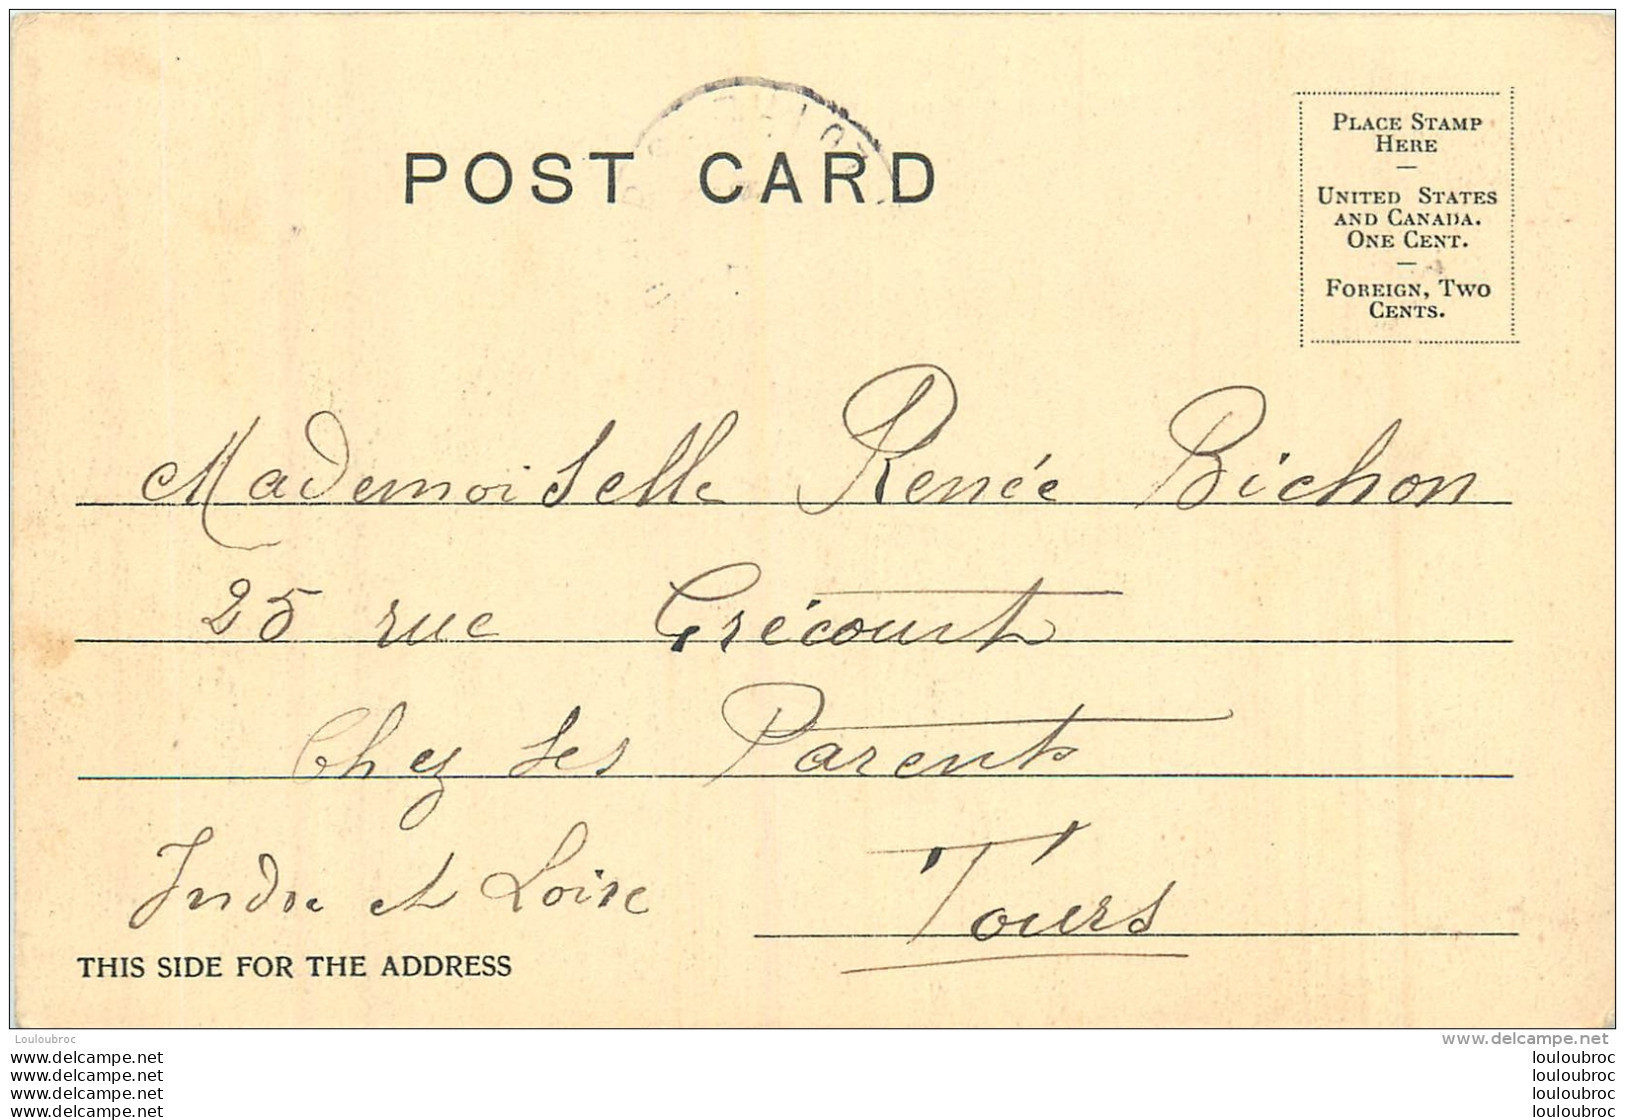 POST CARD
PLACE STAMP
HERE
—
UNITED STATES
AND CANADA.
ONE CENT.
—
FOREIGN, TWO
CENTS.
Mademoiselle Renée Bichon
25 rue Grécourt
Chez ses Parents
Indre et Loire Tours
THIS SIDE FOR THE ADDRESS
Louloubroc
www.delcampe.net
www.delcampe.net
louloubroc
www.delcampe.net
louloubroc
www.delcampe.net
louloubroc
www.delcampe.net
louloubroc